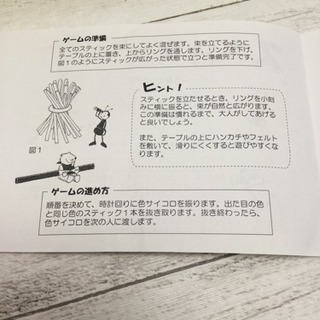 ゲームの準備
全てのスティックを束にしてよく混ぜます。束を立てるように
テーブルの上に置き、上からリングを通します。リングを下げ、
図1のようにスティックが広がった状態で立つと準備完了です。
ヒント!
スティックを立たせるとき、リングを小刻
みに横に振ると、束が自然と広がります。
この準備は慣れるまで、大人がしてあげる
と良いでしょう。
また、テーブルの上にハンカチやフェルト
を敷いて、滑りにくくすると遊びやすくな
ります。
図1
ゲームの進め方
順番を決めて、時計回りに色サイコロを振ります。出た目の色
と同じ色のスティック1本を抜き取ります。抜き終わったら、
色サイコロを次の人に渡します。